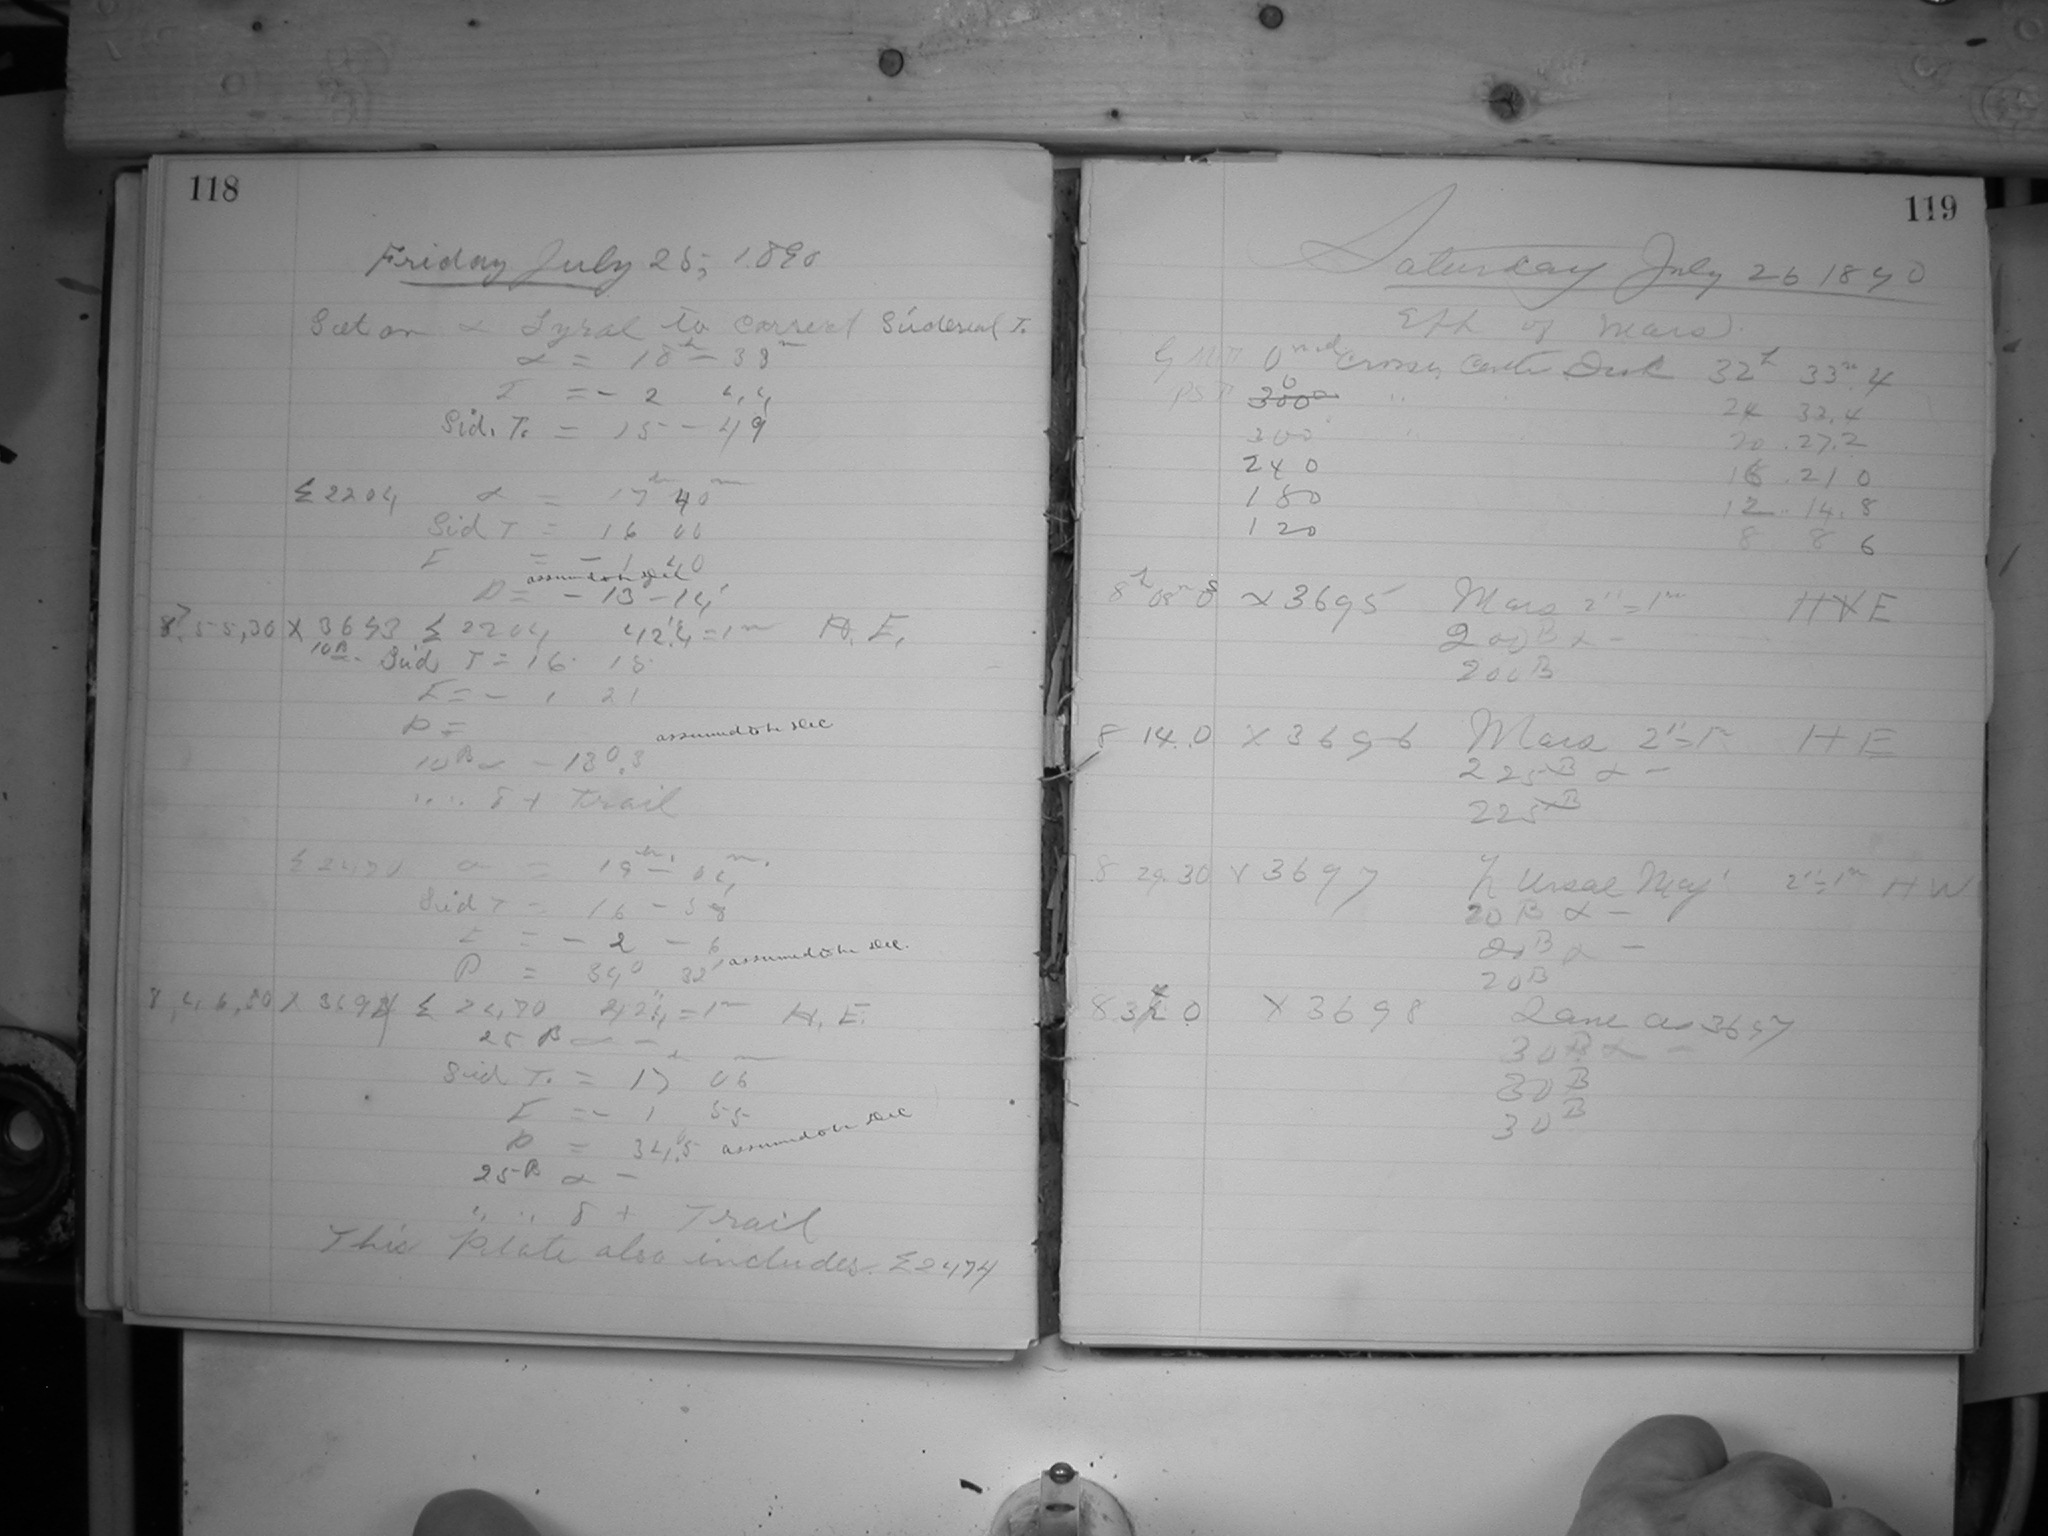 118
Friday July 25, 1890
Set on α Lyrae to correct Sidereal T.
α = 18h - 33m
E = - 2 44
Sid. T. = 15 - 49
Σ 2204 α = 17h 40m
Sid T = 16 00
E = - 1 40
assumed to be dec
D = - 13 - 14'
7.55,30 X 3693 Σ 2204 42".4 = 1m H. E.
10B Sid T = 16 18
E = - 1 21
D =
assumed to be dec
10B α - 13°.3
" " δ + Trail
Σ 2470 α = 19h - 04m
Sid T = 16 - 58
E = - 2 - 6
D = 34° 32' assumed to be dec.
8,46,50 X 3694 Σ 2470 42".4 = 1m H. E.
25 B α -
Sid T. = 17h 06m
E = - 1 55
D = 34.5 assumed to be dec
25B α -
" " δ + Trail
This Plate also includes Σ 2474
119
Saturday July 26 1890
Eph of Mars
G M T 0 mrd crosses Center Disk 32h 33m.4
P S T 300 " " 24 32.4
300 " " 20 27.2
240 16 21 0
180 12 14.8
120 8 8 6
8h 08m 0s X 3695 Mars 2" = 1m H E
200B α -
200B
8 14.0 X 3696 Mars 2" = 1m H E
225B α -
225B
8 29.30 X 3697 ζ Ursae Maj 2" = 1m H W
20B α -
20B α -
20B
8 34 0 X 3698 Same as 3697
30B α -
30B
30B